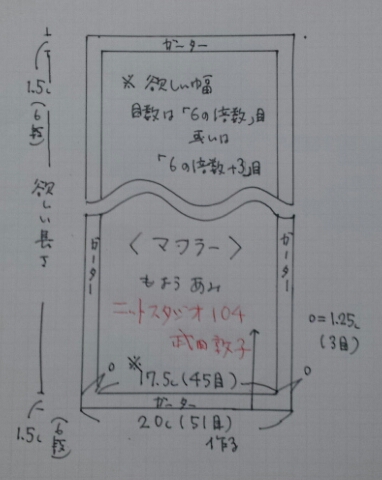 ガーター
1.5c
(6段)
※ 欲しい幅
目数は「6の倍数」目
或いは
「6の倍数+3」目
欲しい長さ
ガーター
ガーター
〈マフラー〉
もようあみ
ニットスタジオ104
武田敦子
o=1.25c
(3目)
※
17.5c(45目)
o
o
ガーター
1.5c
(6段)
20c(51目)
作る